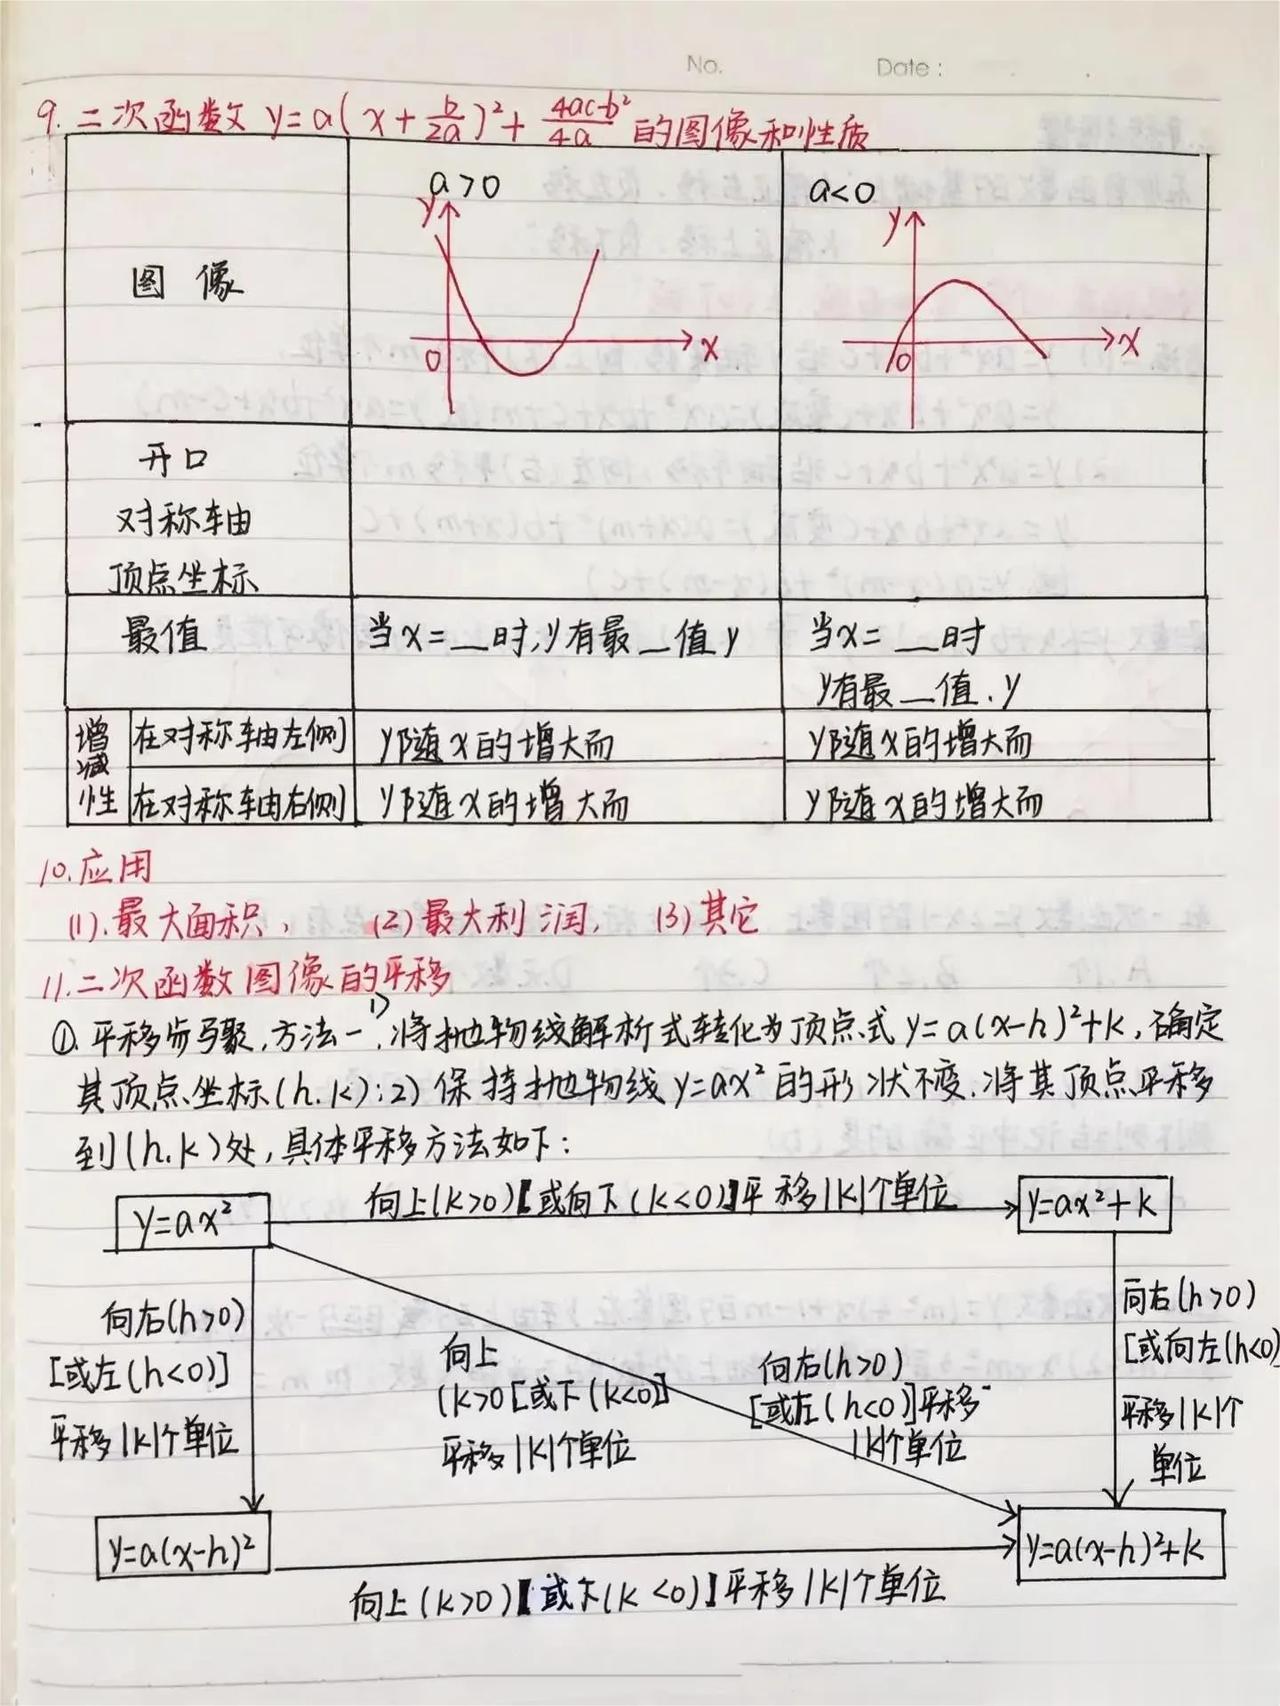 No. Date:
9. 二次函数 y=a(x+b/2a)²+(4ac-b²)/4a 的图像和性质
图像
a>0
y
0
x
a<0
y
0
x
开口
对称轴
顶点坐标
最值
当x=__时,y有最__值y
当x=__时
y有最__值.y
增减性
在对称轴左侧
y随x的增大而
y随x的增大而
在对称轴右侧
y随x的增大而
y随x的增大而
10.应用
(1).最大面积, (2)最大利润, (3)其它
11.二次函数图像的平移
①.平移步骤,方法一,1)将抛物线解析式转化为顶点式 y=a(x-h)²+k,确定
其顶点坐标(h.k);2)保持抛物线y=ax²的形状不变.将其顶点平移
到(h.k)处,具体平移方法如下:
向上(k>0)【或向下(k<0)】平移|k|个单位
y=ax²
y=ax²+k
向右(h>0)
[或左(h<0)]
平移|k|个单位
向上
(k>0[或下(k<0)]
平移|k|个单位
向右(h>0)
[或左(h<0)]平移
|k|个单位
向右(h>0)
[或向左(h<0)
平移|k|个
单位
y=a(x-h)²
y=a(x-h)²+k
向上(k>0)【或下(k<0)】平移|k|个单位